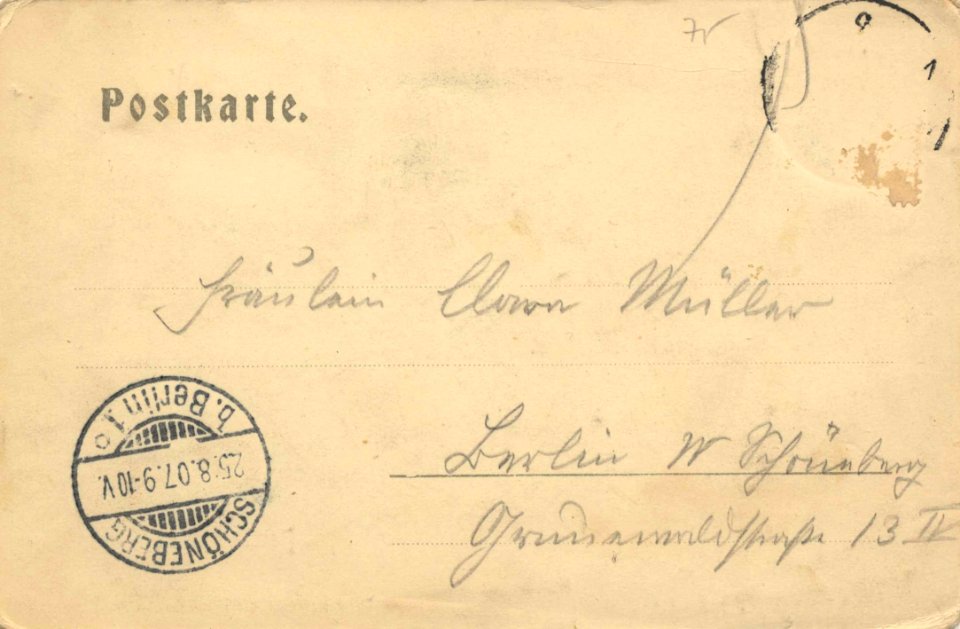 Postkarte.
Fräulein Clara Müller
Berlin W Schöneberg
Grunewaldstraße 13 IV
SCHÖNEBERG
25.8.07.9-10V.
b. Berlin 1